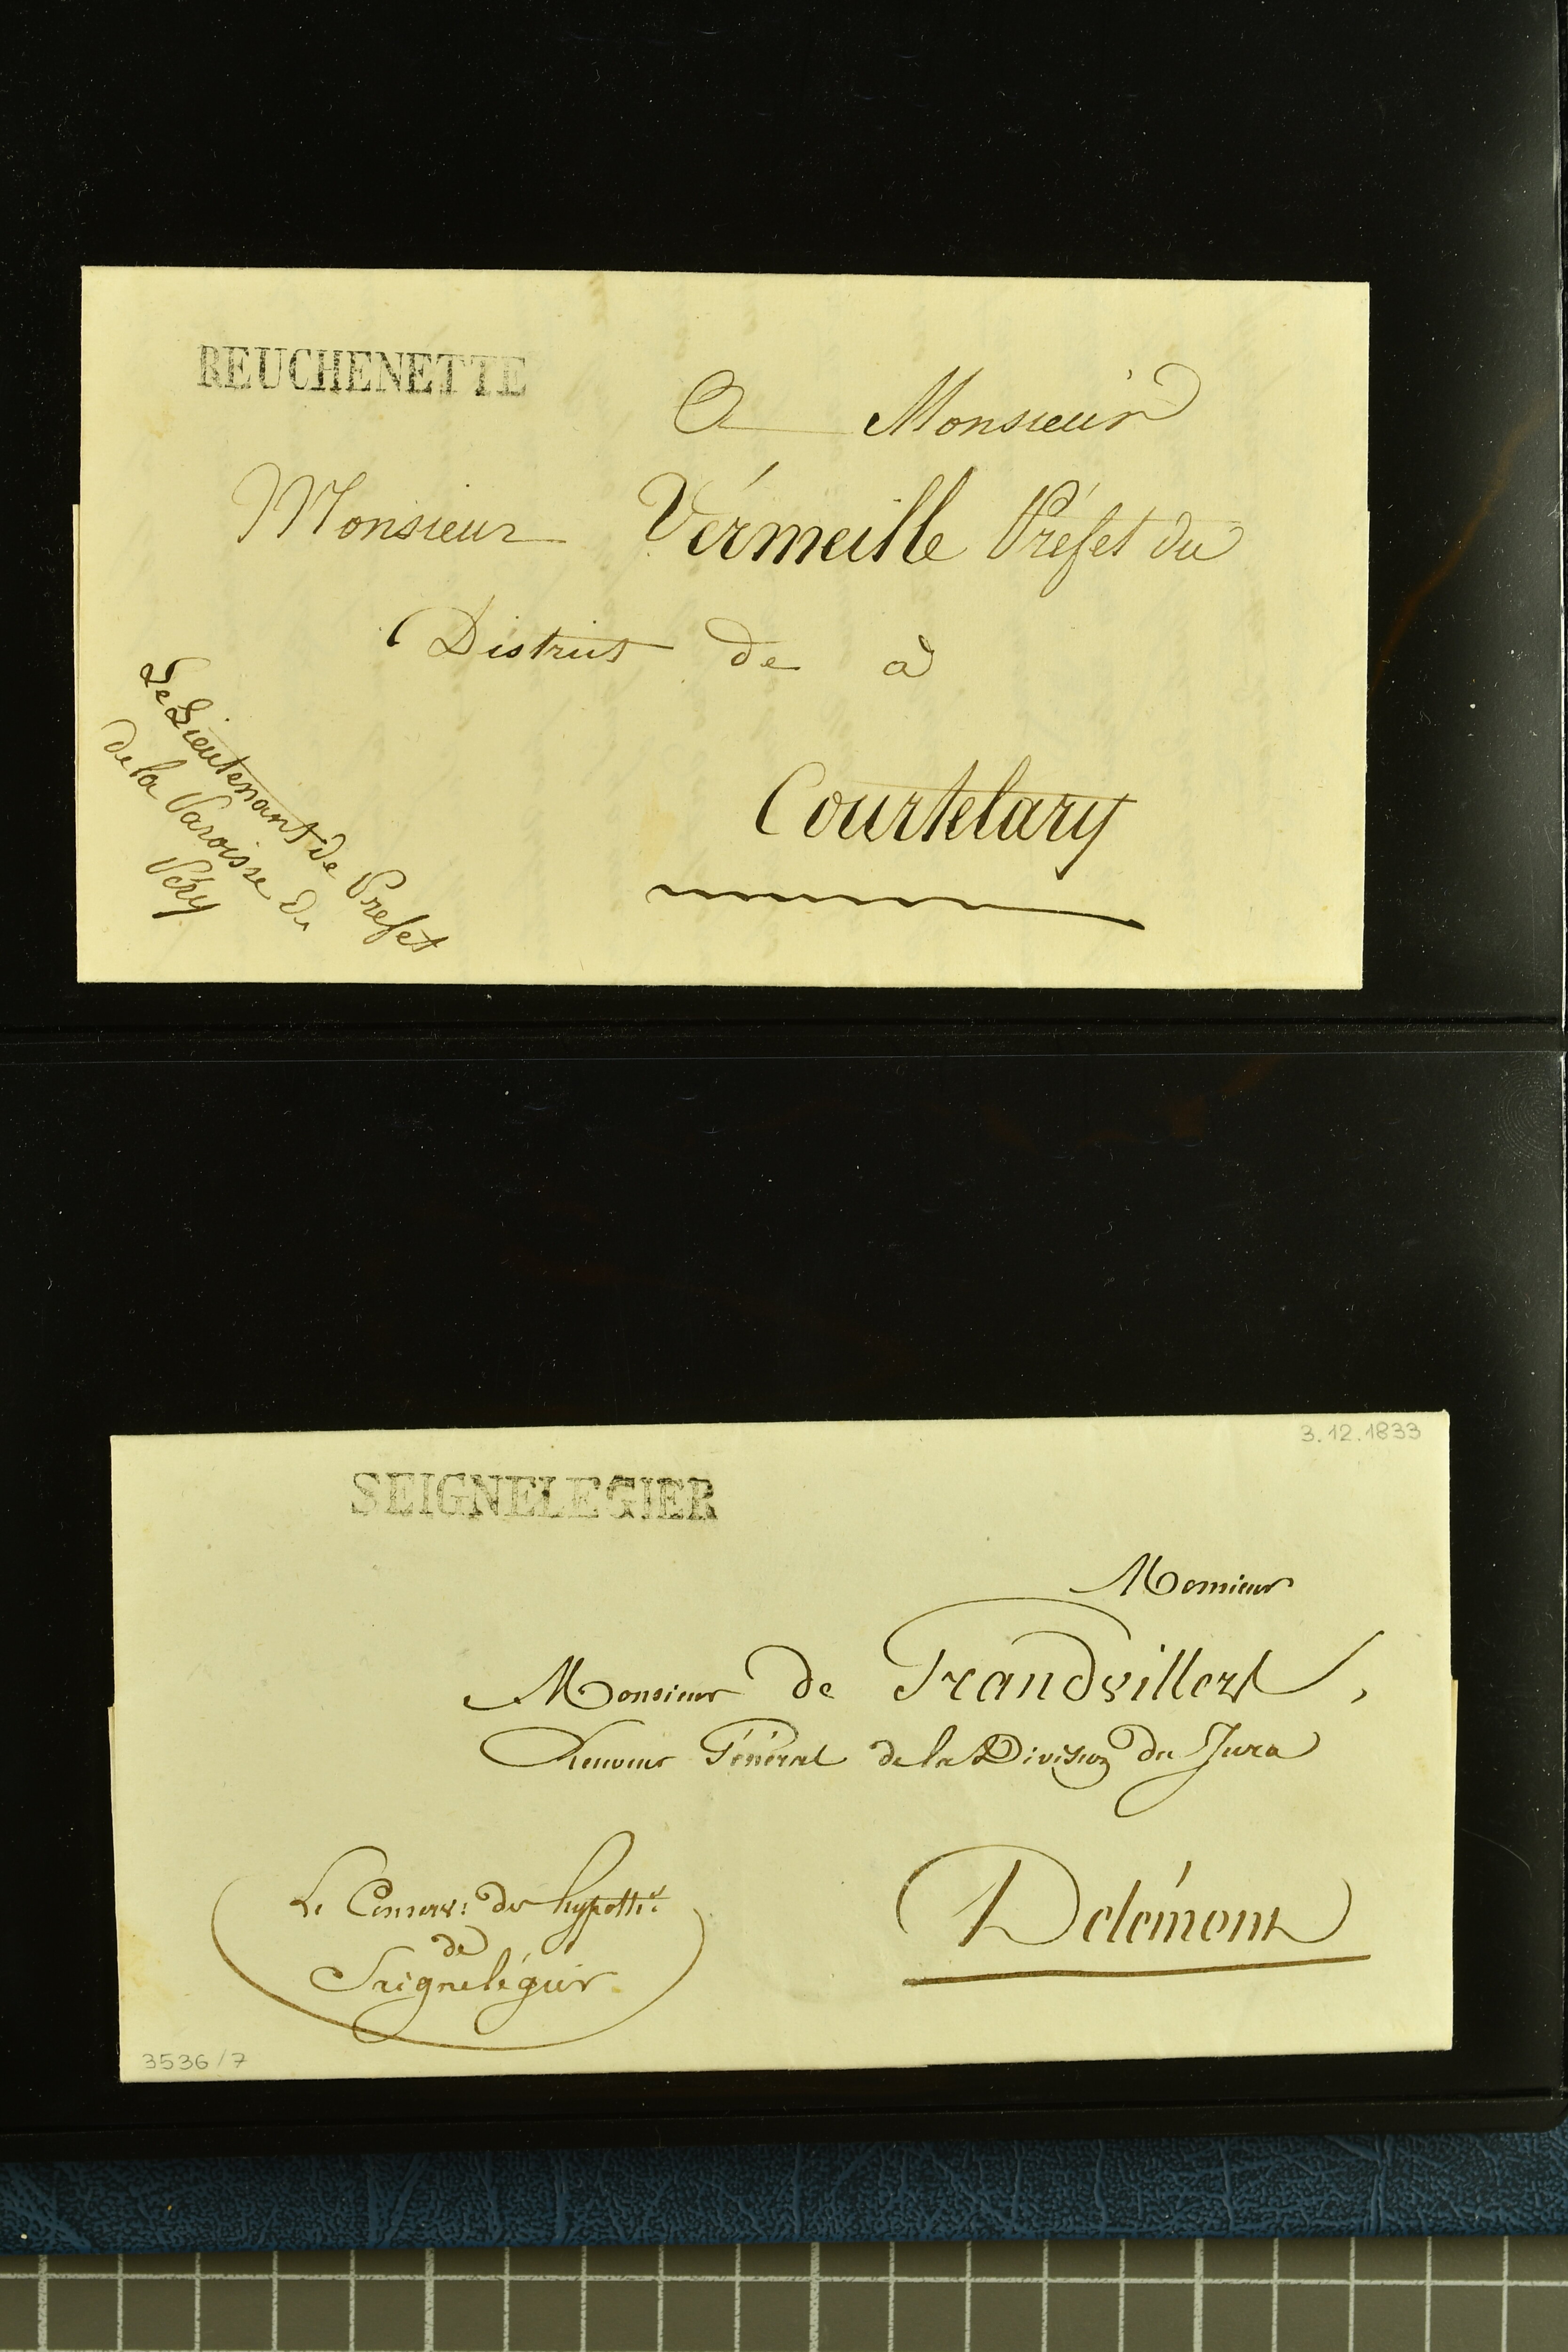 REUCHENETTE
A Monsieur
Monsieur Vérmeille Préfet du
District de à
Courtelary
Le Lieutenant de Prefet
de la Paroisse de
Péry
3.12.1833
SEIGNELEGIER
Monsieur
Monsieur de Grandvillers,
Receveur Général de la Division du Jura
Delémont
Le Conserv: des hypoth:
de
Seignelégier
3536/7